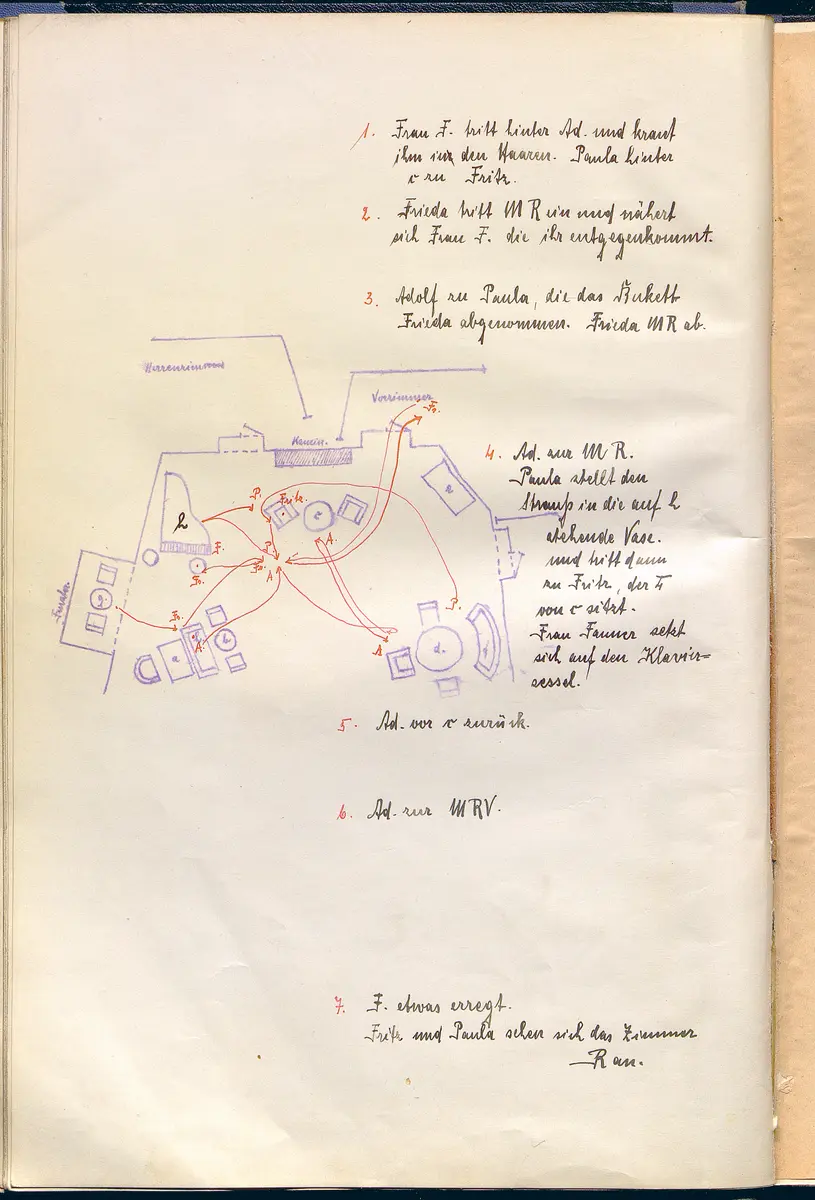 1. Frau F. tritt hinter Ad. und kraut
ihm in den Haaren. Paula hinter
c zu Fritz.
2. Frieda tritt M R ein und nähert
sich Frau F. die ihr entgegenkommt.
3. Adolf zu Paula, die das Bukett
Frieda abgenommen. Frieda MR ab.
Herrenzimmer
Vorzimmer
Fr.
Kamin.
4. Ad. zur M R.
Paula stellt den
Strauß in die auf h
stehende Vase.
und tritt dann
zu Fritz, der
von c sitzt.
Frau Fanner setzt
sich auf den Klavier=
sessel.
P.
Fritz.
h
c
e
F.
P.
A.
Fr.
Fr.
A.
Fenster.
g.
Fr.
P.
A.
a
A.
b
d.
5. Ad. vor c zurück.
6. Ad. zur MRV.
7. F. etwas erregt.
Fritz und Paula sehen sich das Zimmer
R an.